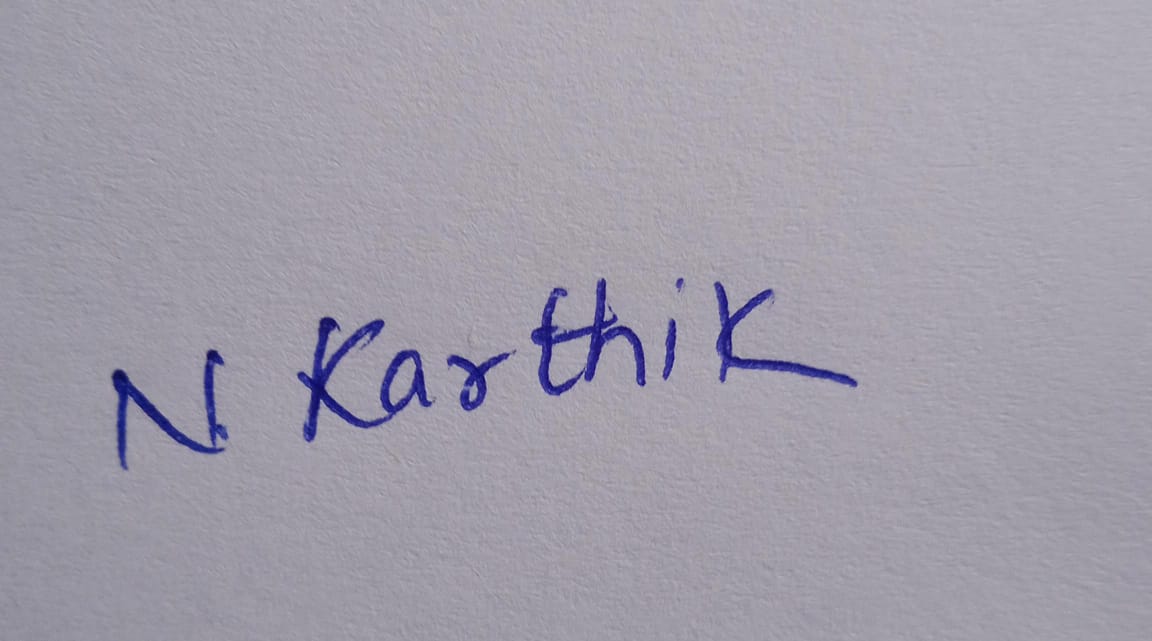 N. Karthik